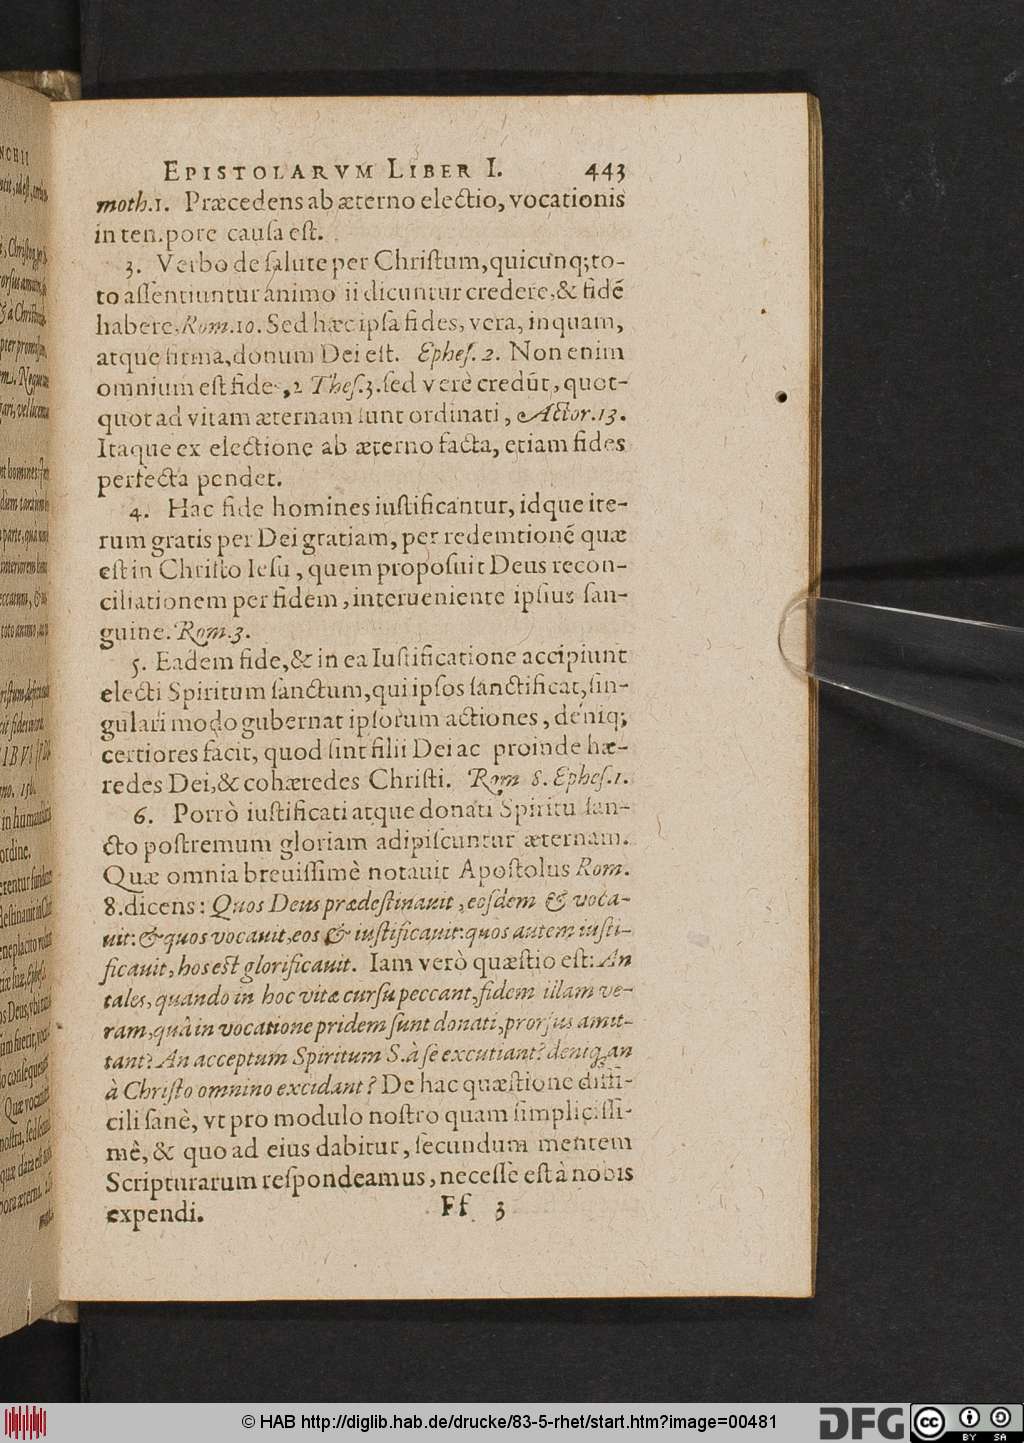 EPISTOLARVM LIBER I. 443
moth.1. Præcedens ab æterno electio, vocationis
in tempore causa est.
3. Verbo de salute per Christum, quicunq; to-
to assentiuntur animo ii dicuntur credere, & fidẽ
habere, Rom.10. Sed hæc ipsa fides, vera, inquam,
atque firma, donum Dei est. Ephes. 2. Non enim
omnium est fides, 2 Thes.3. sed verè credũt, quot-
quot ad vitam æternam sunt ordinati, Actor.13.
Itaque ex electione ab æterno facta, etiam fides
perfecta pendet.
4. Hac fide homines iustificantur, idque ite-
rum gratis per Dei gratiam, per redemtionẽ quæ
est in Christo Iesu, quem proposuit Deus recon-
ciliationem per fidem, interueniente ipsius san-
guine. Rom.3.
5. Eadem fide, & in ea Iustificatione accipiunt
electi Spiritum sanctum, qui ipsos sanctificat, sin-
gulari modo gubernat ipsorum actiones, deniq;
certiores facit, quod sint filii Dei ac proinde hæ-
redes Dei, & cohæredes Christi. Rom 8. Ephes.1.
6. Porrò iustificati atque donati Spiritu san-
cto postremum gloriam adipiscuntur æternam.
Quæ omnia breuissimè notauit Apostolus Rom.
8. dicens: Quos Deus prædestinauit, eosdem & voca-
uit: & quos vocauit, eos & iustificauit: quos autem iusti-
ficauit, hos est glorificauit. Iam verò quæstio est: An
tales, quando in hoc vitæ cursu peccant, fidem illam ve-
ram, quâ in vocatione pridem sunt donati, prorsus amit-
tant? An acceptum Spiritum S. à se excutiant? deniq; an
à Christo omnino excidant? De hac quæstione diffi-
cili sanè, vt pro modulo nostro quam simplicissi-
mè, & quo ad eius dabitur, secundum mentem
Scripturarum respondeamus, necesse est à nobis
expendi. Ff 3
© HAB http://diglib.hab.de/drucke/83-5-rhet/start.htm?image=00481
DFG
cc BY SA